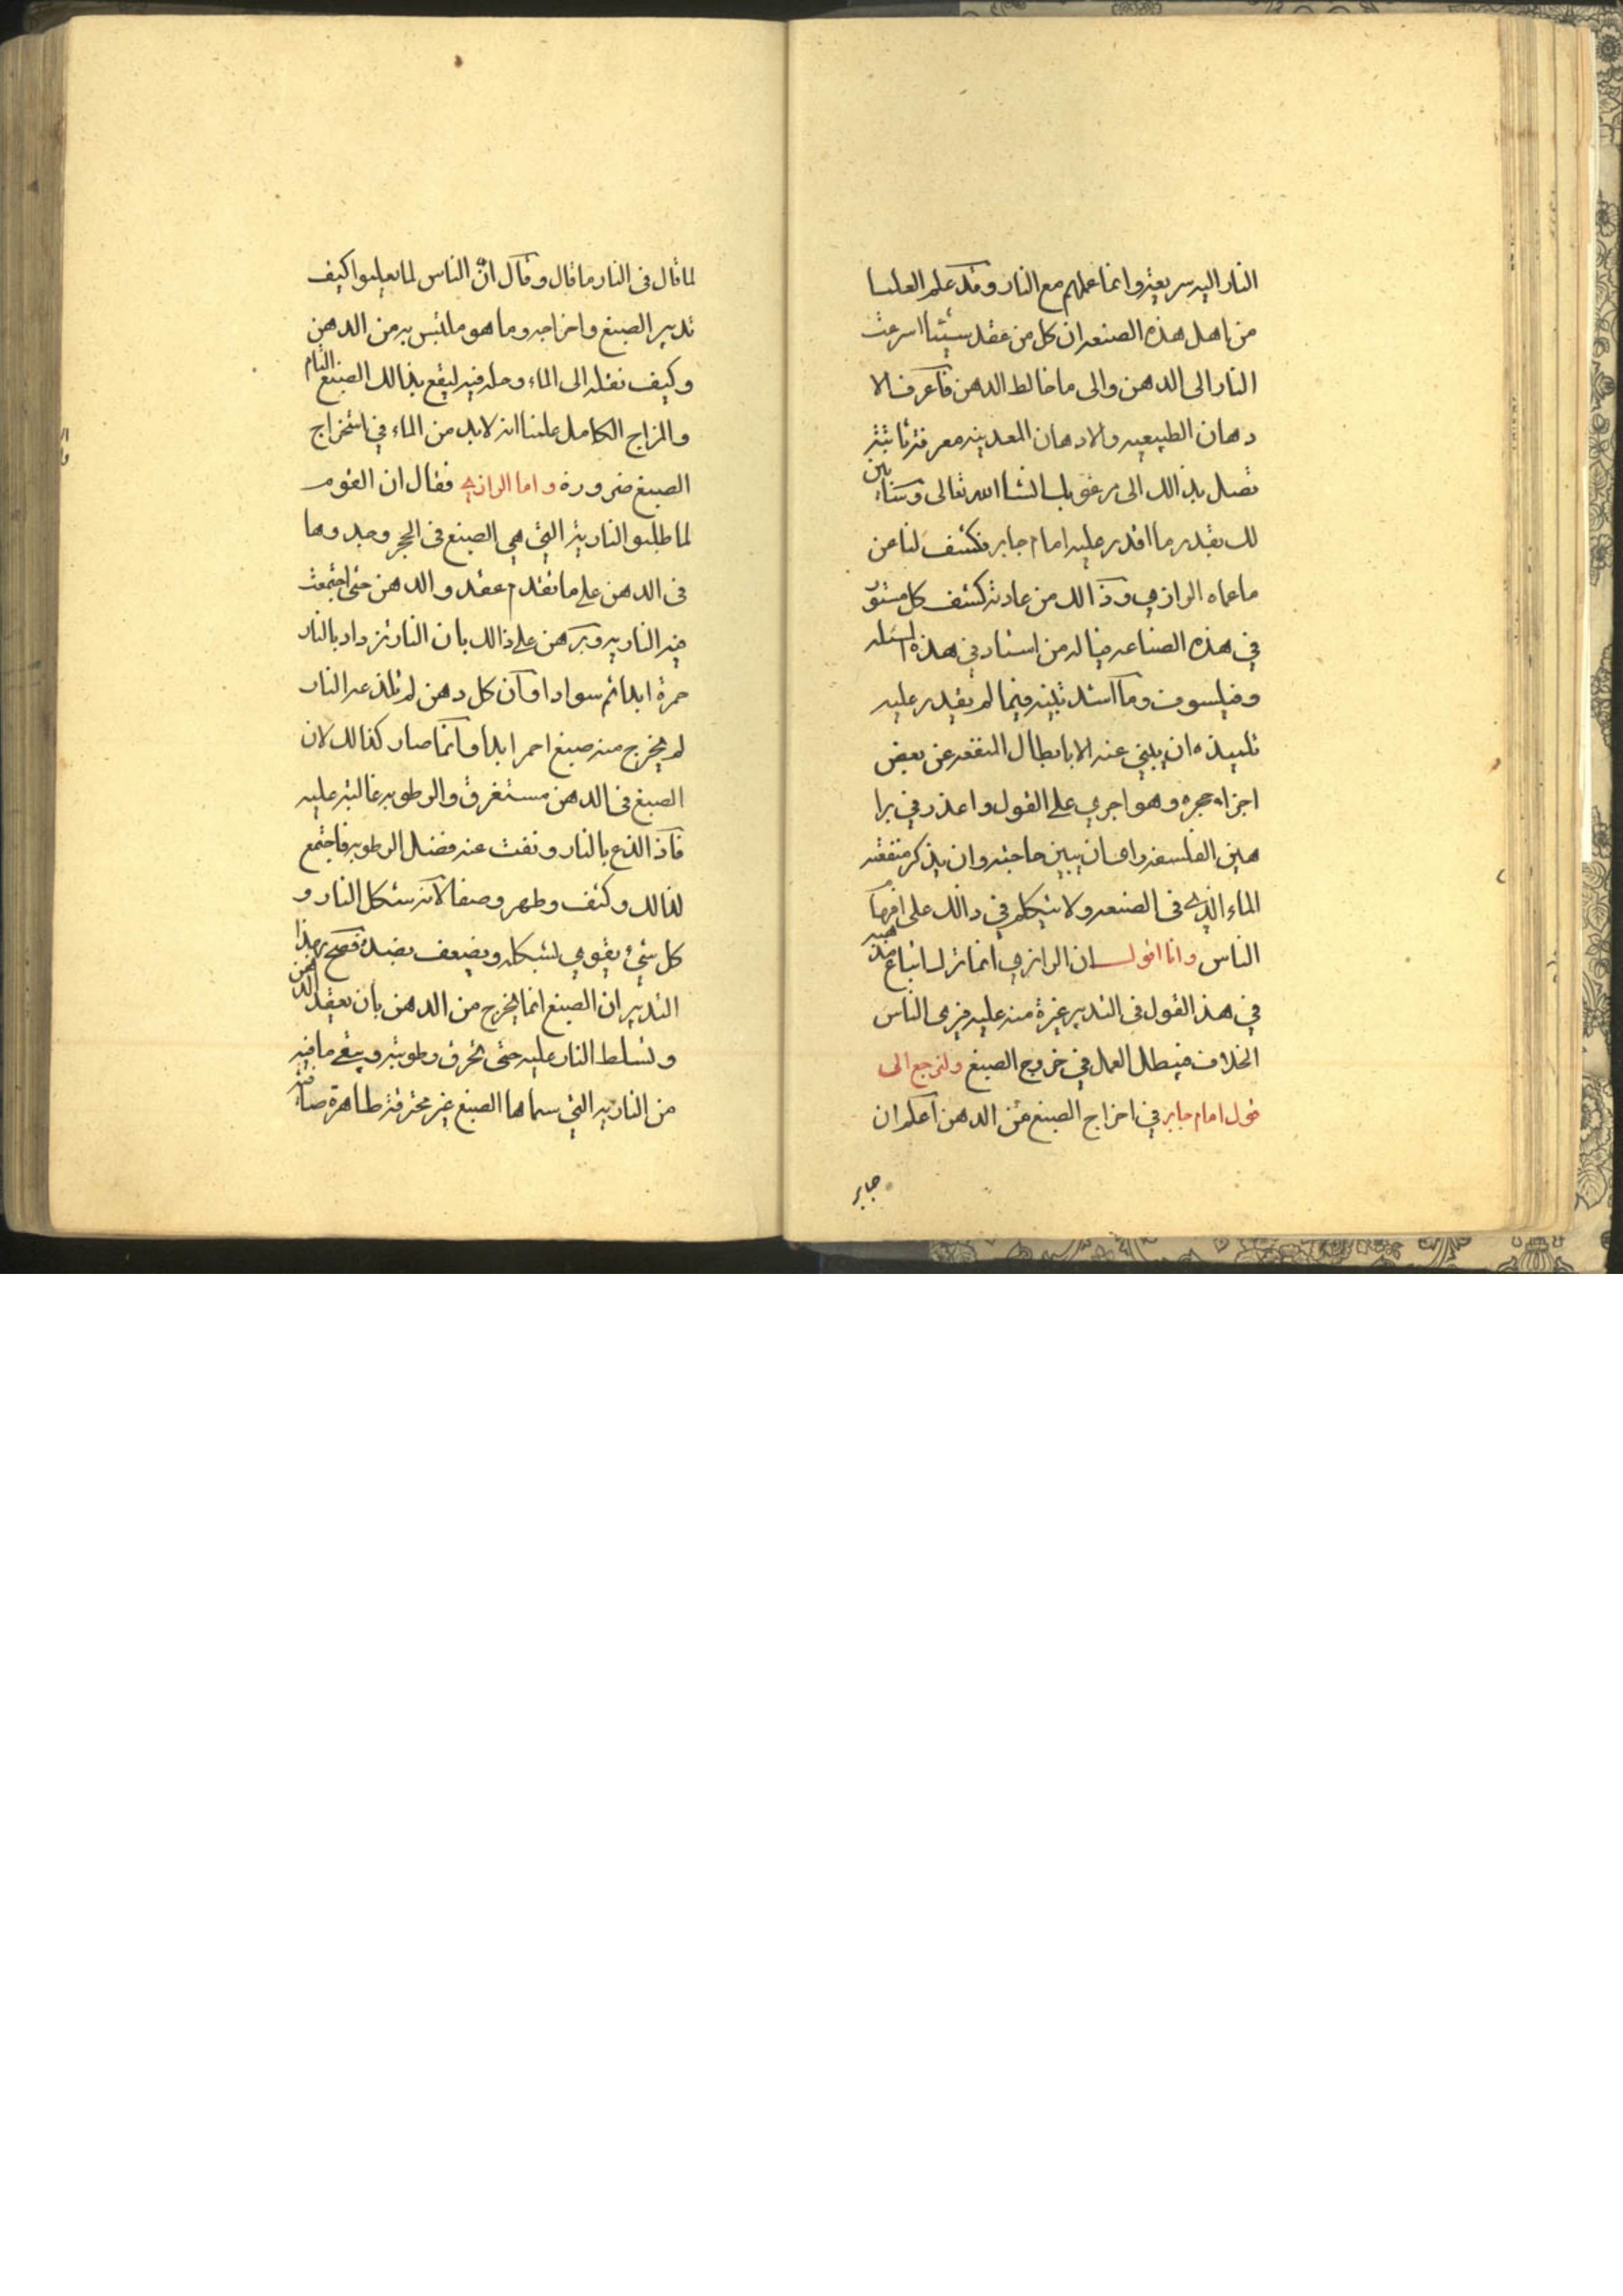 النار اليه سريعة وانما عملهم مع النار وقد علم العلما
من اهل هذه الصنعه ان كل من عقد شيئا اسرعت
النار الى الدهن والى ما خالط الدهن فاعرف الا
دهان الطبيعيه والادهان المعدنيه معرفة ثابتة
تصل بذالك الى انشا الله تعالى وسنابين
لك بقدر ما اقدر عليه امام جابر فكشف لنا عن
ماعماه الرازي وذالك من عادته كشف كل مستور
في هذه الصناعه فياله من استاد في هذه المسئله
وفيلسوف وما اشد تبينه فيما لم يقدر عليه
تلميذه ان يبني عنه الا بابطال المنفعه عن بعض
اجزاء حجره وهو اجري على القول واعذر في برا
هين الفلسفه واى ان يبين حاجته وان يذكر منفقته
الماء الذي في الصنعه ولا يتكلم في ذالك على افهام
الناس وانا اقول ان الرازي انما ترك اتباع مذهبه
في هذ القول في التدبير غيرة منه عليه فرمى الناس
الخلاف فيبطل العمل في خروج الصبغ ولنرجع الى
قول امام جابر في اخراج الصبغ من الدهن اعلم ان
جابر
لما قال في النار ما قال وقال ان الناس لما يعلموا كيف
تدبير الصبغ واخراجه وما هو ملتبس به من الدهن
وكيف نقله الى الماء وحله فيه ليقع بذالك الصبغ التام
والمزاج الكامل علمنا انه لابد من الماء في استخراج
الصبغ ضرورة واما الرازي فقال ان القوم
لما طلبوا النارية التي هي الصبغ في الحجر وجدوها
في الدهن على ما تقدم عقد والدهن حتى اجتمعت
فيه الناريه وبرهن على ذالك بان النار تزداد بالنار
حمرة ابدا ثم سوادا وان كل دهن لم تلذعه النار
لم يخرج منه صبغ احمر ابدا وانما صار كذالك لان
الصبغ في الدهن مستغرق والرطوبه غالبة عليه
فاذ الذع بالنار ونفت عنه فضل الرطوبه فاجتمع
لذالك وكثف وظهر وصفا لانه شكل النار و
كل شيئ يقوي لشكله ويضعف بضده فصح بهذا
التدبير ان الصبغ انما يخرج من الدهن بان يعقد الدهن
وتسلط النار عليه حتى تحرق رطوبته ويبقى ما فيه
من الناريه التي سماها الصبغ غير محترقة طاهرة صافية